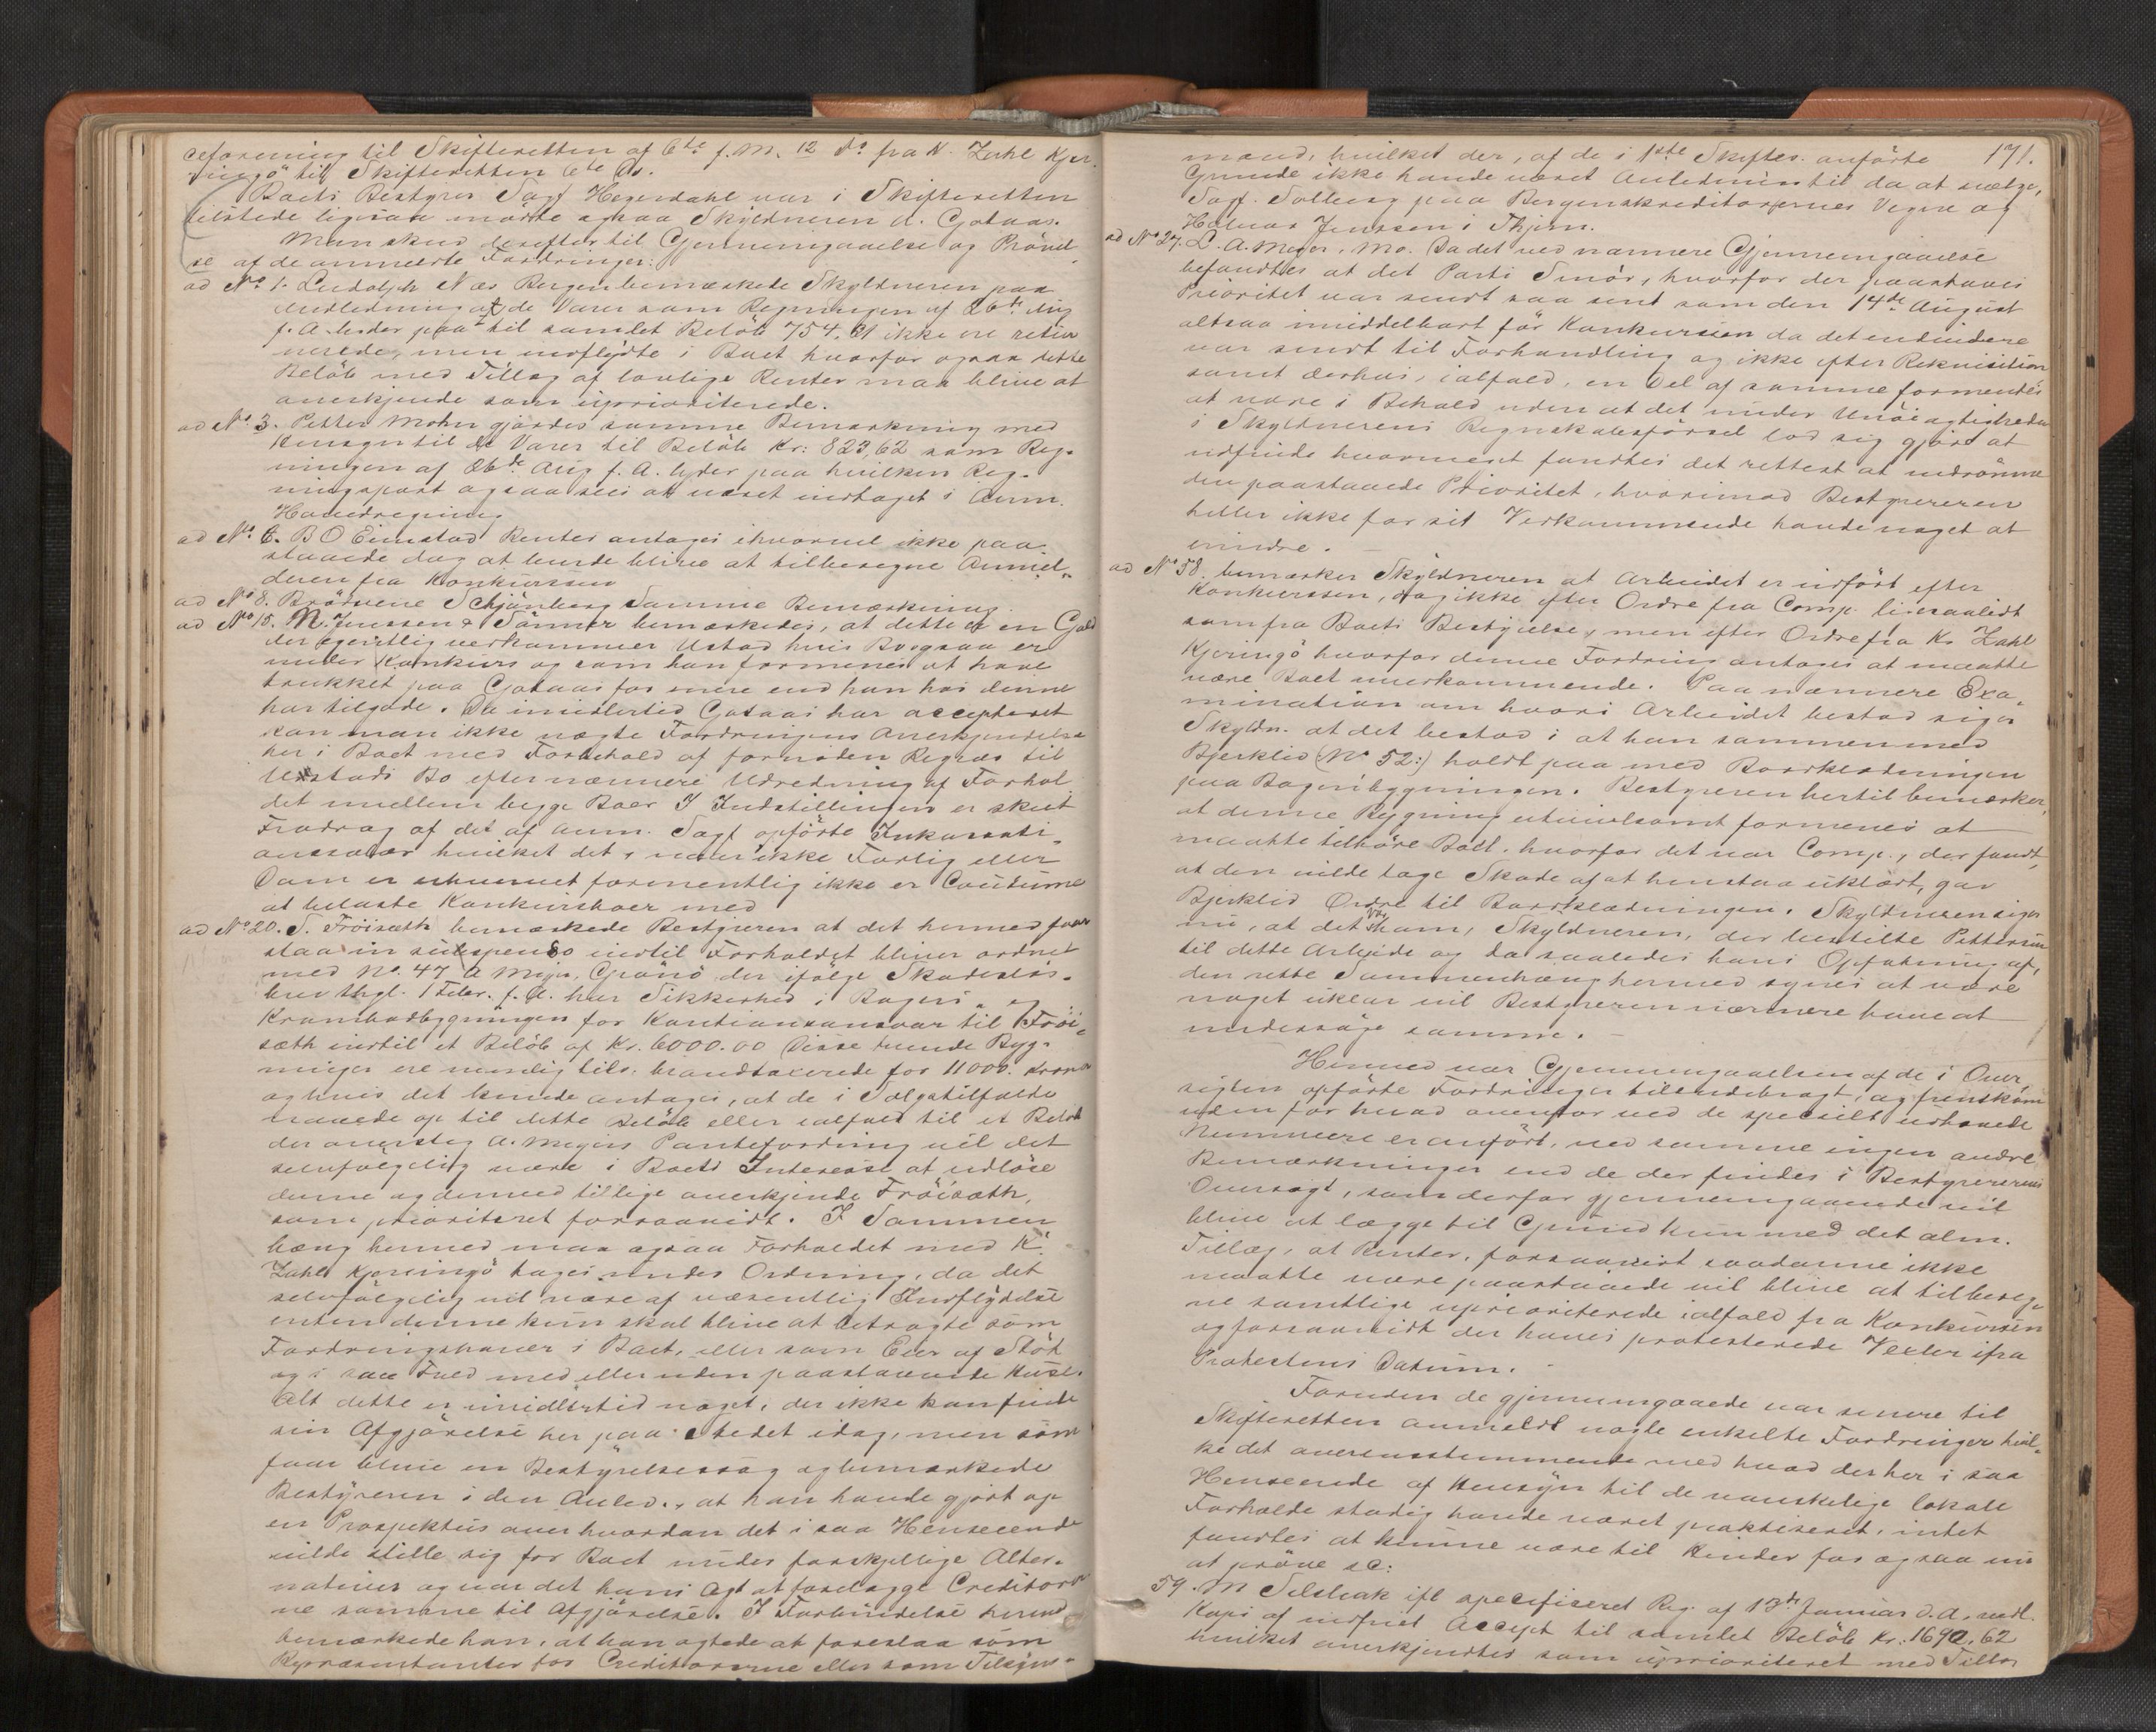 ceforening til Skifteretten af 6te f.M. 12 do fra K. Zahl Kjer-
ringö til Skifteretten 6te ds.
Boets Bestyrer Sagf Hegerdahl var i Skifteretten
tilstede ligesaa mödte ogsaa Skyldneren A. Gotaas.
Man skred derefter til Gjennemgaaelse og Prövel-
se af de anmeldte Fordringer:
ad No 1. Ludolph Næs Bergen bemærkede Skyldneren paa
Anledning af de Varer som Regningen af 26de Aug
f. A. lyder paa til samlet Belöb 754,61 ikke ere retur
nerede, men indflydte i Boet hvorfor ogsaa dette
Belöb med Tillæg af lovlige Renter maa blive at
anerkjende som uprioriterede.
ad No 3. Petter Mohn gjordes samme Bemærkning med
Hensyn til de Varer til Belöb Kr: 823,62 som Reg-
ningen af 26de Aug f. A. lyder paa hvilken Reg-
ningspost ogsaa sees at været indtaget i Anm.
Hovedregning
ad No 6. B O Eimstad Renter antages ihvorvel ikke paa-
staaede dog at burde blive at tilberegne Anmel-
deren fra Konkurssen
ad No 8. Brödrene Schjönberg Samme Bemærkning.
ad No 15. M. Jenssen & Sönner bemærkedes, at dette er en Gjæld
der egentlig vedkommer Ustad hvis Bo ogsaa er
under Konkurs og som han formenes at have
trukket paa Gotaas for mere end han hos denne
har tilgode. Da imidlertid Gotaas har accepteret
kan man ikke nægte Fordringens Anerkjendelse
her i Boet med Forbehold af fornöden Regres til
Ustads Bo efter nærmere Udredning af Forhol
det mellem begge Boer I Indstillingen er skeet
Fradrag af det af Anm. Sagf opförte Inkassati-
onssalær hvilket det, naar ikke Forlig eller
Dom er erhvervet formentlig ikke er Coutume
at belaste Konkursboer med
ad No 20. S. Fröiseth bemærkede Bestyreren at det hermed faar
staa in suspenso indtil Forholdet bliver ordnet
med No. 47 A Meyer, Grönö der ifölge Skadeslös-
brev thgl. 1 Febr. f. A. har Sikkerhed i Bageri- og
Krambodbygningen for Kautionsansvar til Fröi-
sæth indtil et Belöb af Kr. 6000.00 Disse tvende Byg-
ninger ere nemlig tils. brandtaxerede for 11000. Kroner
og hvis det kunde antages, at de i Salgstilfælde
naaede op til dette Belöb eller ialfald til et Belöb
der oversteg A. Meyers Pantefordring vil det
selvfölgelig være i Boets Interesse at udlöse
denne og dermed tillige anerkjende Fröisæth,
som prioriteret forsaavidt. I Sammen
hæng hermed maa ogsaa Forholdet med K.
Zahl Kjerringö tages under Ordning, da det
selvfölgelig vil være af væsentlig Indflydelse
enten denne kun skal blive at betragte som
Fordringshaver i Boet, eller som Eier af Stöt
og i saa Fald med eller uden paastaaende Huse.
Alt dette er imidlertid noget, der ikke kan finde
sin Afgjörelse her paa Stedet idag, men som
faar blive en Bestyrelsessag og bemærkede
Bestyreren i den Anled., at han havde gjort op
en Prospektus over hvordan det i saa Henseende
vilde stille sig for Boet under forskjellige Alter-
nativer og var det hans Agt at forelægge Creditorer
ne samme til Afgjörelse. I Forbindelse hermed
bemærkede han, at han agtede at foreslaa som
Repræsentanter for Creditorerne eller som Tilsyns-
171.
mænd, hvilket der, af de i 1ste Skiftes. anförte
Grunde ikke havde været Anledning til da at vælge,
Sagf. Solberg paa Bergenskreditorernes Vegne og
Halvor Jenssen i Thjem.
ad No 27. L. A. Meyer, Mo. Da det ved nærmere Gjennemgaaelse
befandtes at det Parti Smör, hvorfor der paastaaes
Prioritet var sendt saa sent som den 14de August
altsaa imiddelbart för Konkurssen da det endvidere
var sendt til Forhandling og ikke efter Rekvisition
samt derhos, ialfald, en Del af samme formentes
at være i Behold uden at det under Unöiagtigheden
i Skyldnerens Regnskabsförsel lod sig gjöre at
udfinde hvormeget fandtes det rettest at indrömme
den paastaaede Prioritet, hvorimod Bestyreren
heller ikke for sit Vedkommende havde noget at
erindre.
ad No 58. bemærker Skyldneren at Arbeidet er udfört efter
Konkurssen, dog ikke efter Ordre fra Comp. ligesaalidt
som fra Boets Bestyrelse, men efter Ordre fra K. Zahl
Kjeringö hvorfor denne Fordring antages at maatte
være Boet uvedkommende. Paa nærmere Exa-
mination om hvori Arbeidet bestod siger
Skyldn. at det bestod i at han sammen med
Bjerklid (No 52:) holdt paa med Bordklædningen
paa Bageribygningen. Bestyreren hertil bemærker,
at denne Bygning utvivlsomt formenes at
maatte tilhöre Boet, hvorfor det var Comp., der fandt,
at den vilde tage Skade af at henstaa uklædt, gav
Bjerklid Ordre til Bordklædningen. Skyldneren siger
nu, at det var ham, Skyldneren, der bestilte Pettersen
til dette Arbeide og da saaledes hans Opfatning af,
den rette Sammenhæng hermed synes at være
noget uklar vil Bestyreren nærmere have at
undersöge samme.
Hermed var Gjennemgaaelsen af de i Over-
sigten opförte Fordringer tilendebragt, og fremkom
uden for hvad ovenfor ved de specielt udhævede
Nummere er anfört, ved samme ingen andre
Bemærkninger end de der findes i Bestyrerens
Oversigt, som derfor gjennemgaaende vil
blive at lægge til Grund kun med det alm.
Tillæg, at Renter, forsaavidt saadanne ikke
maatte være paastaaede vil blive at tilbereg-
ne samtlige uprioriterede ialfald fra Konkurssen
og forsaavidt der haves protesterede Vexler ifra
Protestens Datum.
Foruden de gjennemgaaede var senere til
Skifteretten anmeldt nogle enkelte Fordringer hvil-
ke det overensstemmende med hvad der her i saa
Henseende af Hensyn til de vanskelige lokale
Forholde stadig havde været praktiseret, intet
fandtes at kunne være til Hinder for ogsaa nu
at pröve sc:
59. M Selsbak ifl specificeret Reg. af 13de Januar d. A. vedl.
Kopi af indfriet Accept til samlet Belöb Kr: 1690.62
hvilket anerkjendtes som uprioriteret med Tillæg